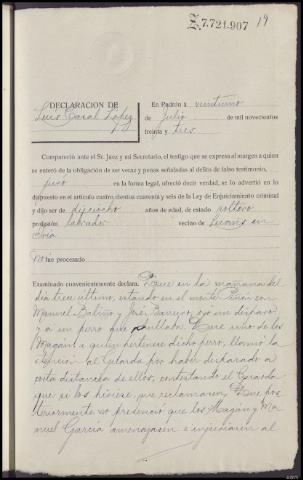 Z.7.721.907 19
DECLARACION DE
Luis Casal López
En Padrón a veintiuno
de Julio de mil novecientos
treinta y tres
Compareció ante el Sr. Juez y mi Secretario, el testigo que se expresa al margen a quien
se enteró de la obligación de ser veraz y penas señaladas al delito de falso testimonio,
juró en la forma legal, ofreció decir verdad, se lo advertió en lo
dispuesto en el artículo cuatrocientos cuarenta y seis de la Ley de Enjuiciamiento criminal
y dijo ser de dieciocho años de edad, de estado soltero
profesión labrador vecino de en
Oria
No fue procesado
Examinado convenientemente declara. Que en la mañana del
día trece último, estando en el monte con
Manuel Baliño y José Barreiro oyó un disparo
y a un perro que aullaba. Que uno de los
Magán a quien pertenece dicho perro, llamó la
atención al Guarda por haber disparado a
corta distancia de ellos, contestando el Guarda
que si los hiriese, que reclamaran. Que pos
teriormente no presenció que los Magán y Ma
nuel García amenazasen e injuriaran al